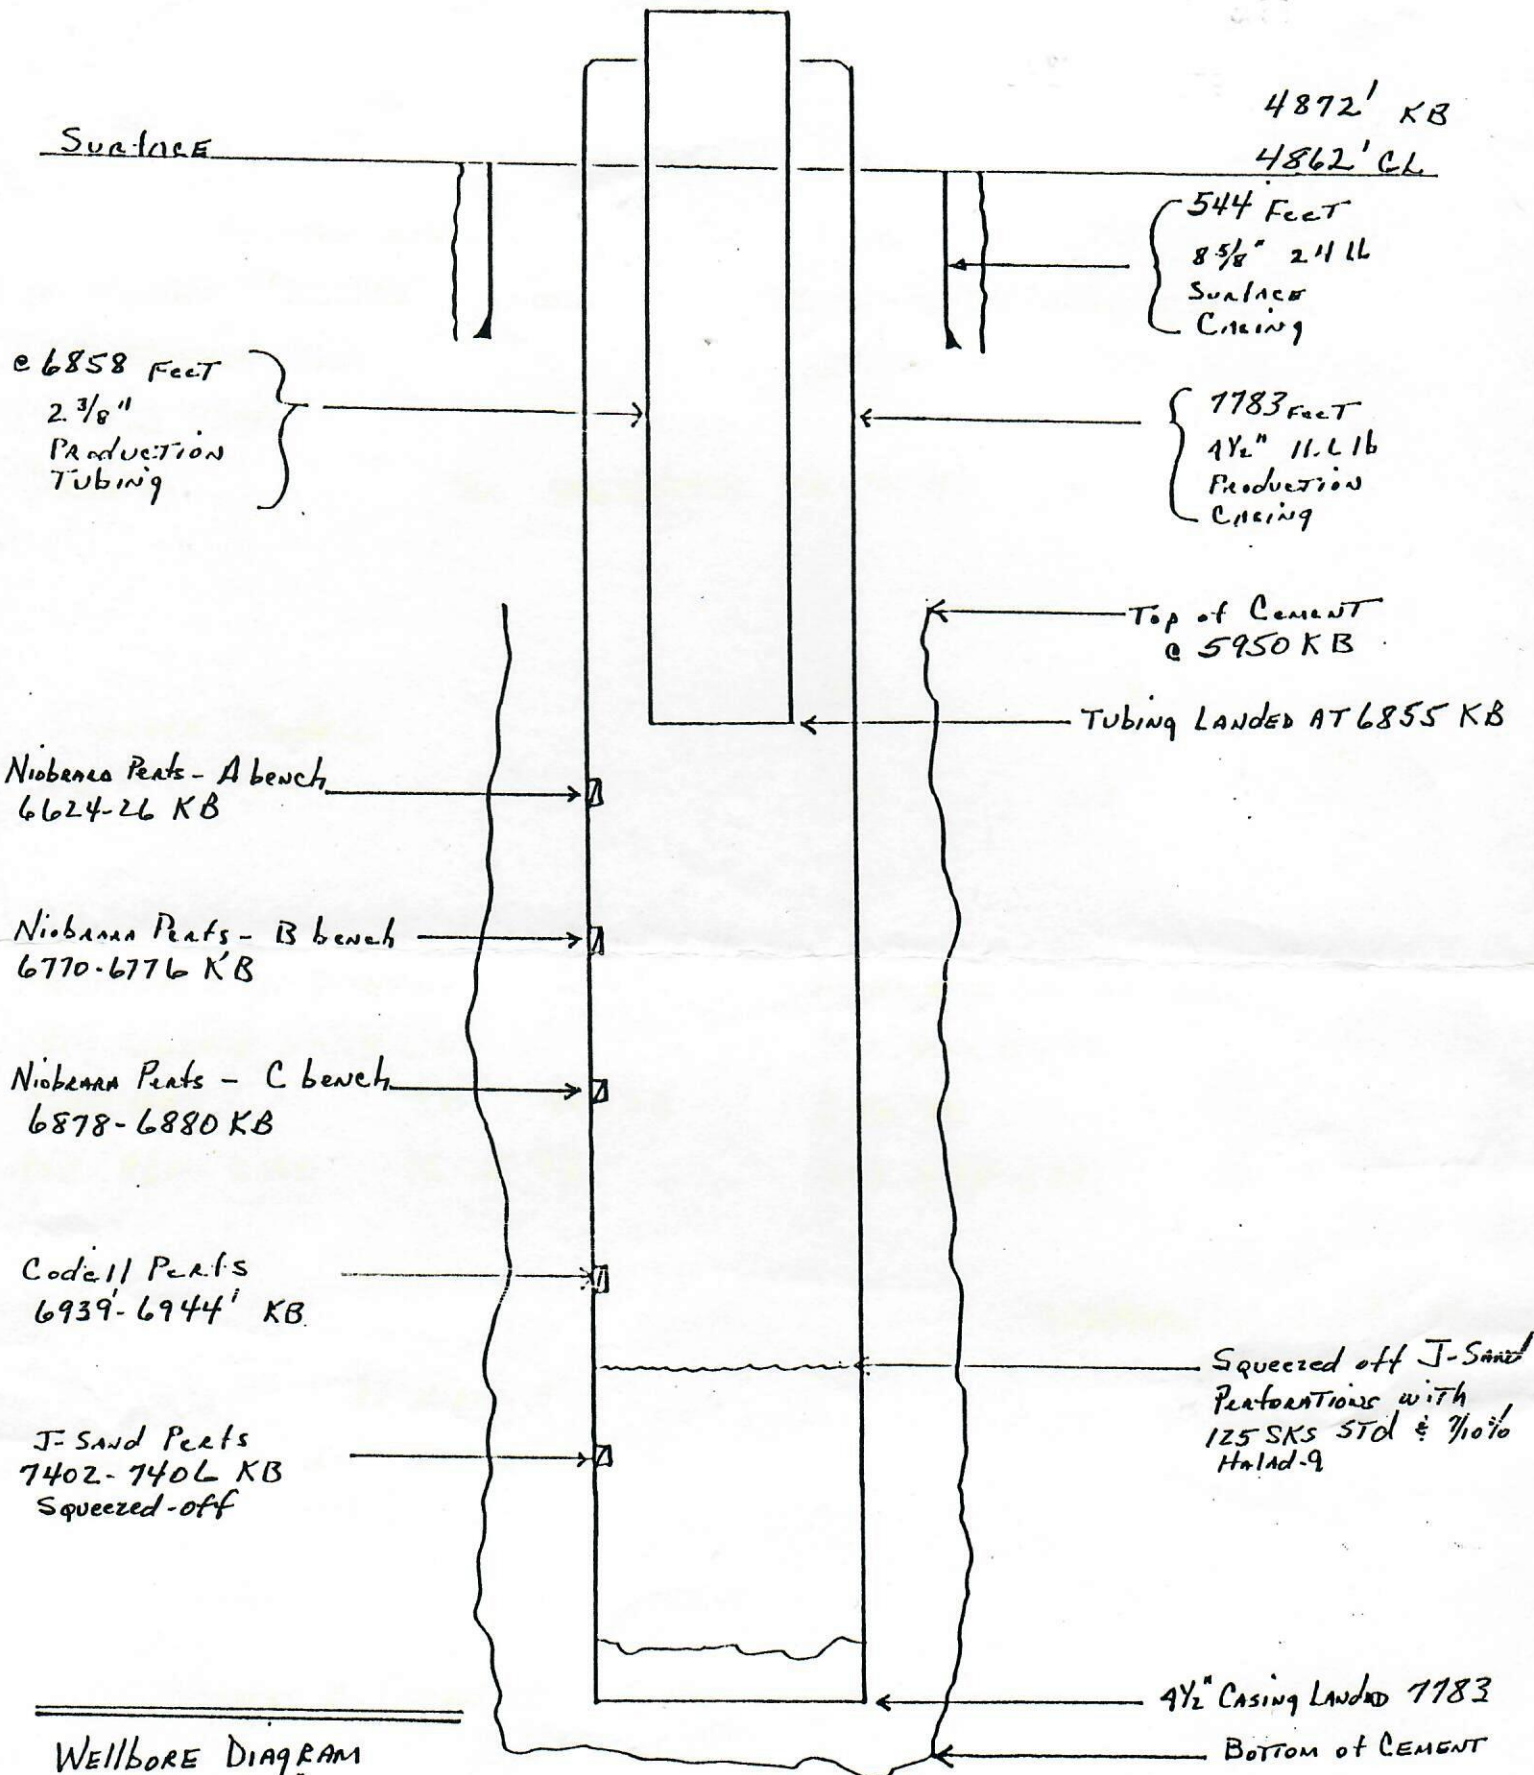 4872' KB
Surface
4862' GL
544 Feet
8 5/8" 24 lb
Surface
Casing
@ 6858 Feet
2 3/8"
Production
Tubing
7783 Feet
4 1/2" 11.6 lb
Production
Casing
Top of Cement
@ 5950 KB
Tubing Landed AT 6855 KB
Niobrara Perfs - A bench
6624-26 KB
Niobrara Perfs - B bench
6770-6776 KB
Niobrara Perfs - C bench
6878-6880 KB
Codell Perfs
6939'-6944' KB
Squeezed off J-Sand
Perforations with
125 SKS STd & 7/10%
Halad-9
J-Sand Perfs
7402-7406 KB
Squeezed-off
4 1/2" Casing Landed 7783
Wellbore Diagram
Bottom of Cement